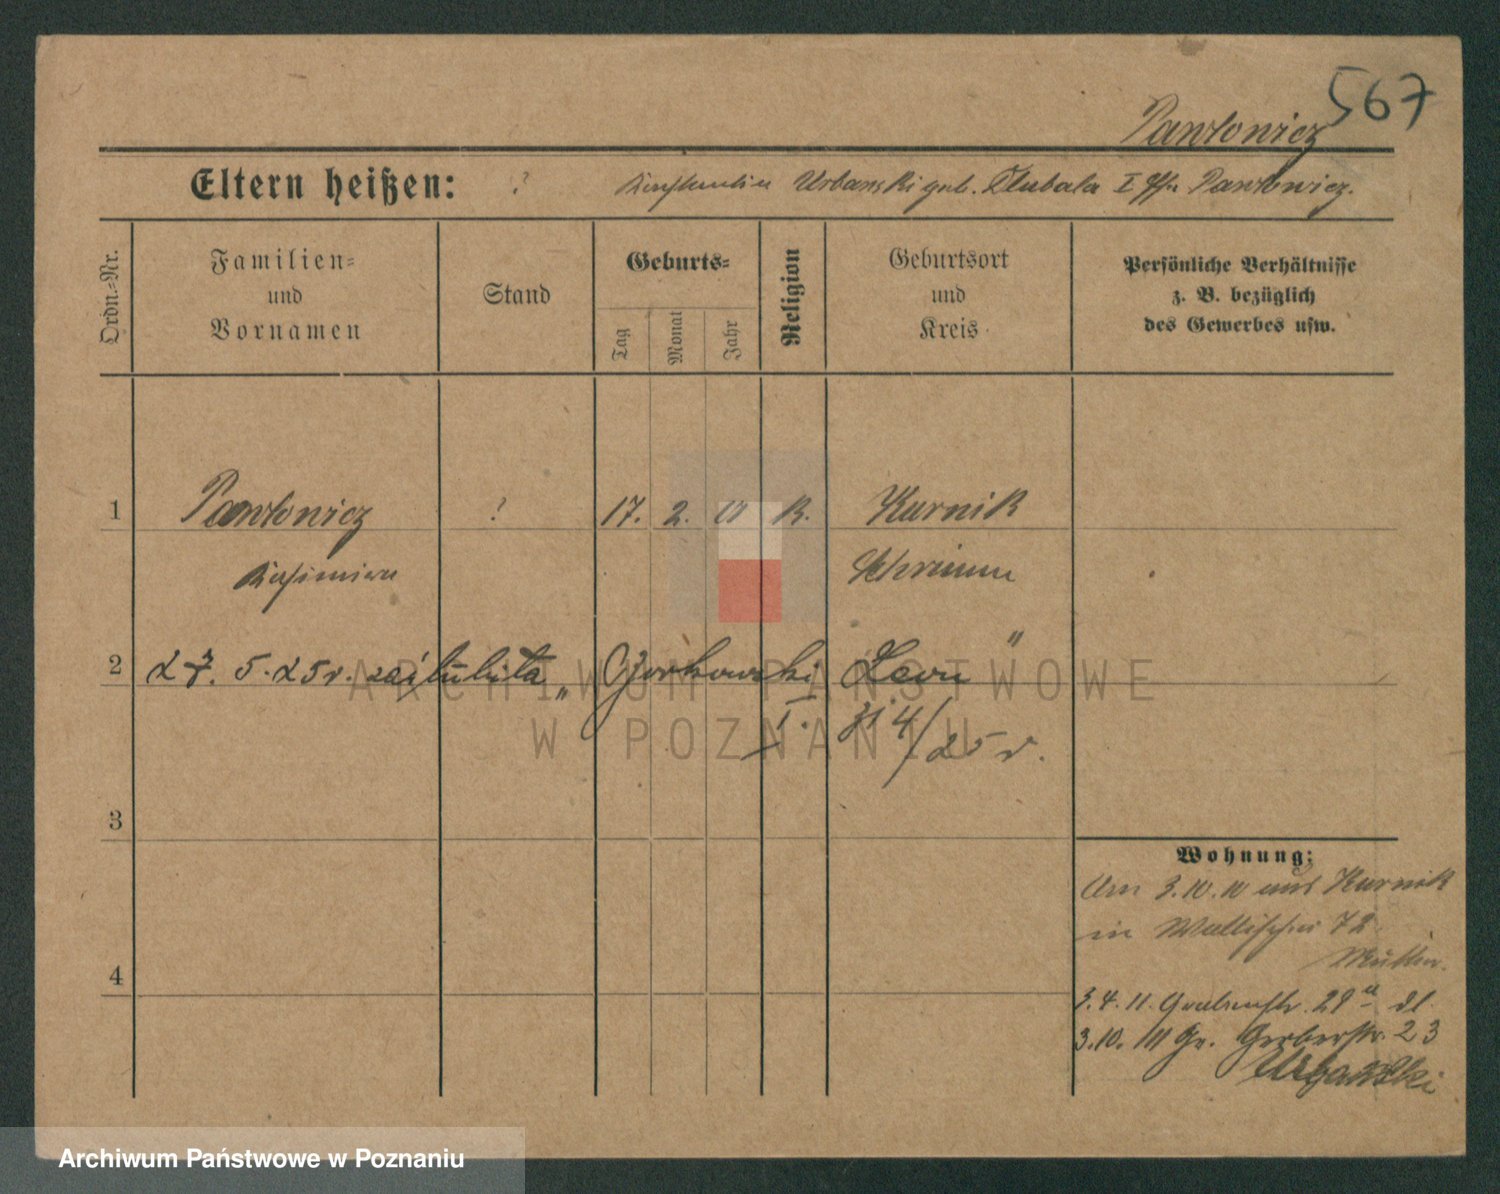 567
Pawłowicz
Eltern heißen: ? Urbanski geb. Klubala I Pawłowicz.
Ordn.-Nr.
Familien- und Vornamen
Stand
Geburts-
Tag
Monat
Jahr
Religion
Geburtsort und Kreis
Persönliche Verhältnisse z. B. bezüglich des Gewerbes usw.
1 Pawłowicz ? 17. 2. K. Kurnik
Kasimira Schrimm
2 27. 5. 25 r. zaślubiła „Ozorkowski Leon"
I. 4/25 r.
3
4
Wohnung:
Am 3.10.10 aus Kurnik
in Wallischei 72
Mutter.
3.4.11. Grabenstr. 29
3.10. Gerberstr. 23
Urbański
ARCHIWUM PAŃSTWOWE
W POZNANIU
Archiwum Państwowe w Poznaniu